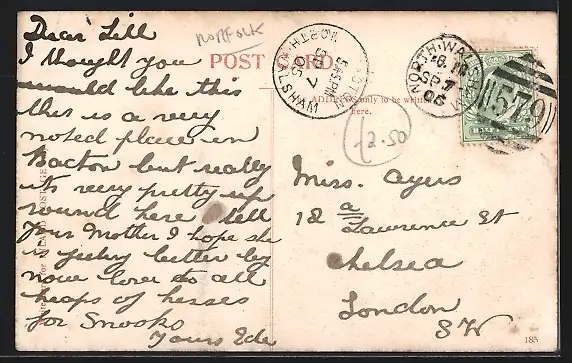 Dear Lill
I thought you
would like this
this is a very
noted place in
Bacton but really
its very pretty up
round here tell
your Mother I hope she
is feeling better by
now love to all
heaps of kisses
for Snooks
Yours Ede
NORFOLK
POST CARD.
ADDRESS only to be written
here.
12.50
BACTON
NORTH WALSHAM
5 45 PM
SP 7
05
NORTH WALSHAM
SP 7
05
579
Miss. Ayris
12 a Lawrence St
Chelsea
London
SW
185